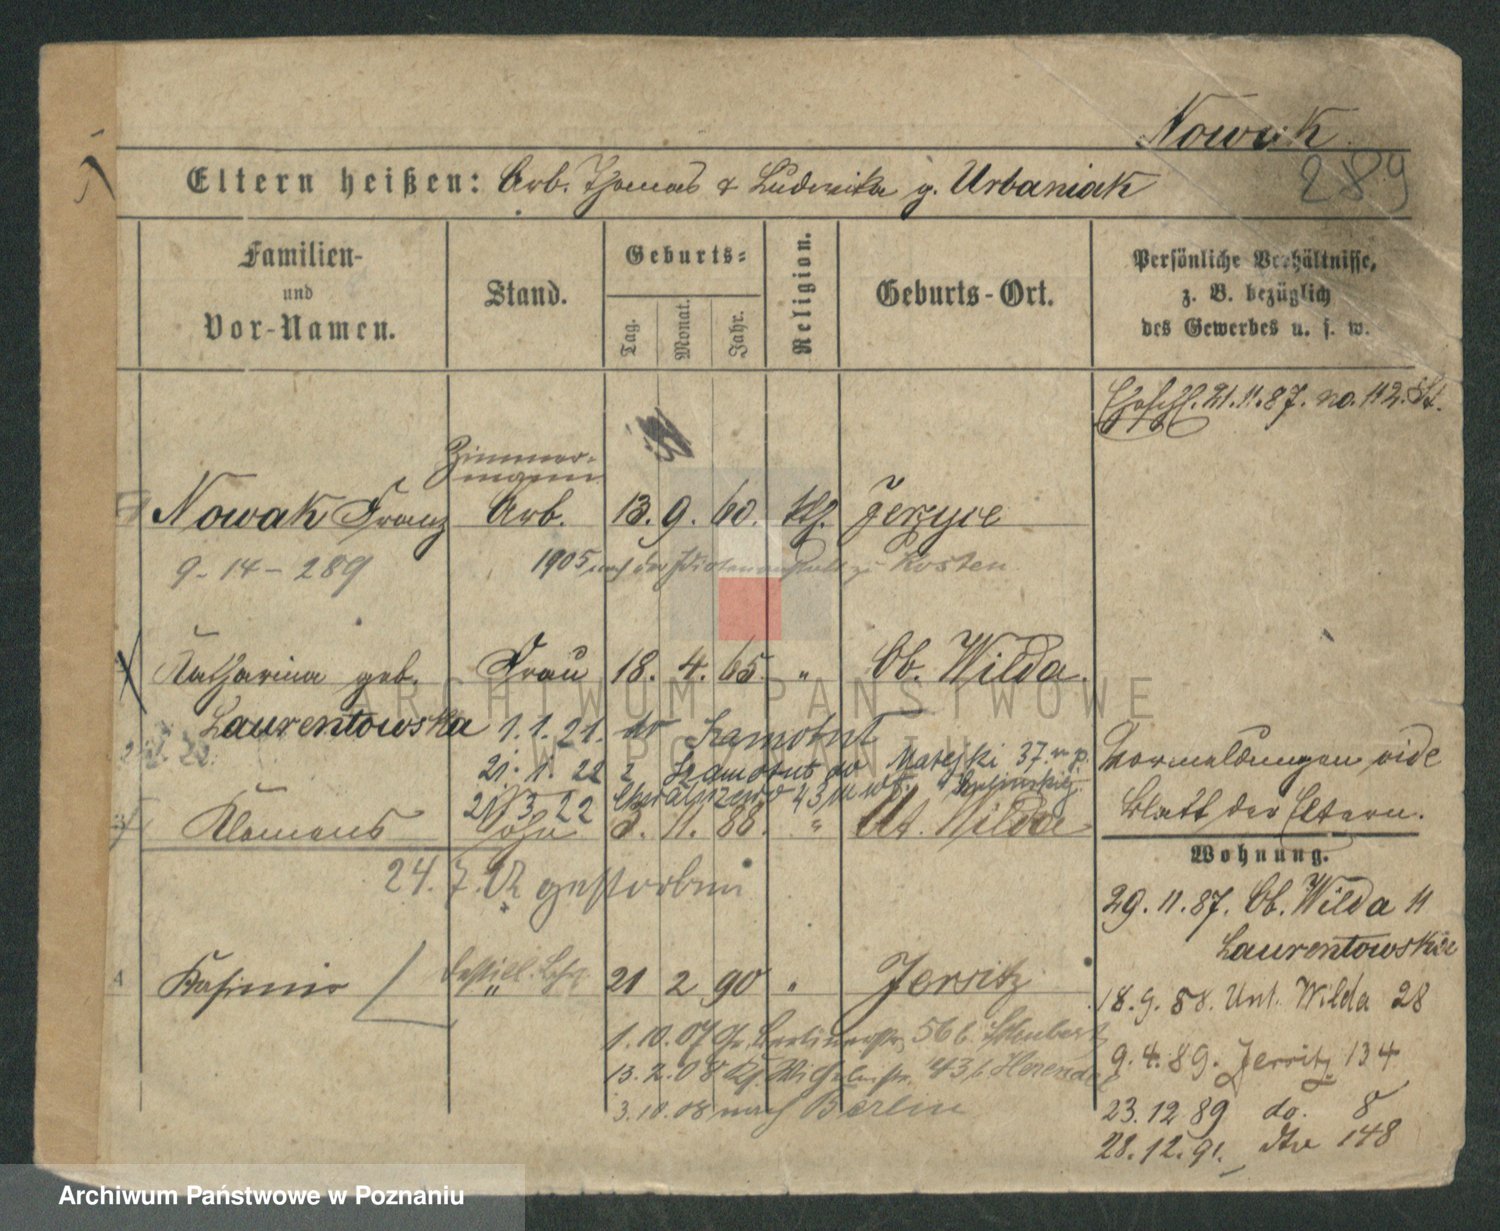 Nowak.
289
Eltern heißen: Arb. Thomas & Ludwika g. Urbaniak
Familien-
und
Vor-Namen.
Stand.
Geburts-
Tag.
Monat.
Jahr.
Religion.
Geburts-Ort.
Persönliche Verhältnisse,
z. B. bezüglich
des Gewerbes u. s. w.
21.11.87. no. 112. St.
Zimmer-
Nowak Franz Arb. 13. 9. 60. kth. Jerzyce
9-14-289
1905 nach der Idiotenanstalt zu Kosten
Katharina geb. Frau 18. 4. 65. " Ob. Wilda.
Laurentowska 1.1.21.
21.1.22 Matejki 37.
21/3 22 43
Klemens Sohn 3. 11. 88. " Ut. Wilda
24.7. gestorben
Vermeldungen vide
Blatt der Eltern.
Wohnung.
29.11.87. Ob. Wilda 11
Laurentowski
18.9.88. Unt. Wilda 28
9.4.89. Jersitz 134
23.12 89 do. 8
28.12.91. dto 148
4 Kasimir 21 2 90 " Jersitz
1.10.07 Gr. Berlinerstr. 56 b.
13.2.08 43 b.
3.10.08 nach Berlin
ARCHIWUM PAŃSTWOWE
W POZNANIU
Archiwum Państwowe w Poznaniu